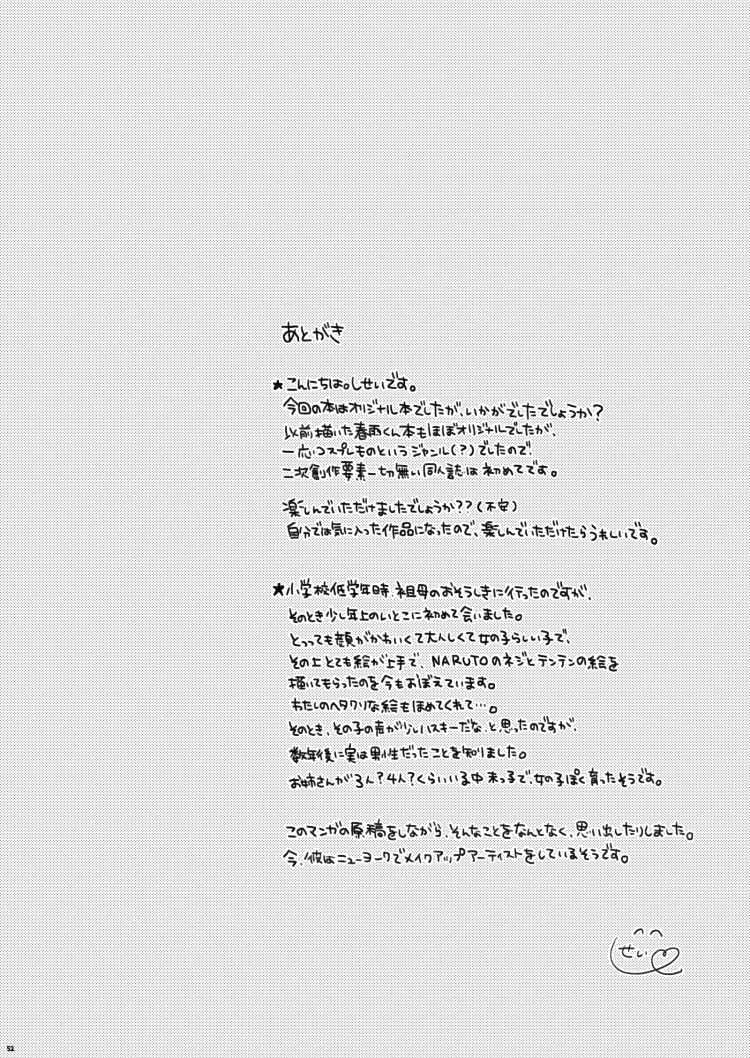 あとがき
★こんにちは。しせいです。
今回の本はオリジナル本でしたが、いかがでしたでしょうか?
以前描いた春雨くん本もほぼオリジナルでしたが、
一応コスプレものというジャンル(?)でしたので、
二次創作要素一切無い同人誌は初めてです。
楽しんでいただけましたでしょうか??(不安)
自分では気に入った作品になったので、楽しんでいただけたらうれしいです。
★小学校低学年時、祖母のおそうしきに行ったのですが、
そのとき少し年上のいとこに初めて会いました。
とっっても顔がかわいくて大人しくて女の子らしい子で、
その上とても絵が上手で、NARUTOのネジとテンテンの絵を
描いてもらったのを今もおぼえています。
わたしのヘタクソな絵もほめてくれて…。
そのとき、その子の声が少しハスキーだな、と思ったのですが、
数年後に実は男性だったことを知りました。
お姉さんが3人?4人?くらいいる中末っ子で、女の子ぽく育ったそうです。
このマンガの原稿をしながら、そんなことをなんとなく、思い出したりしました。
今、彼はニューヨークでメイクアップアーティストをしているそうです。
せい
52